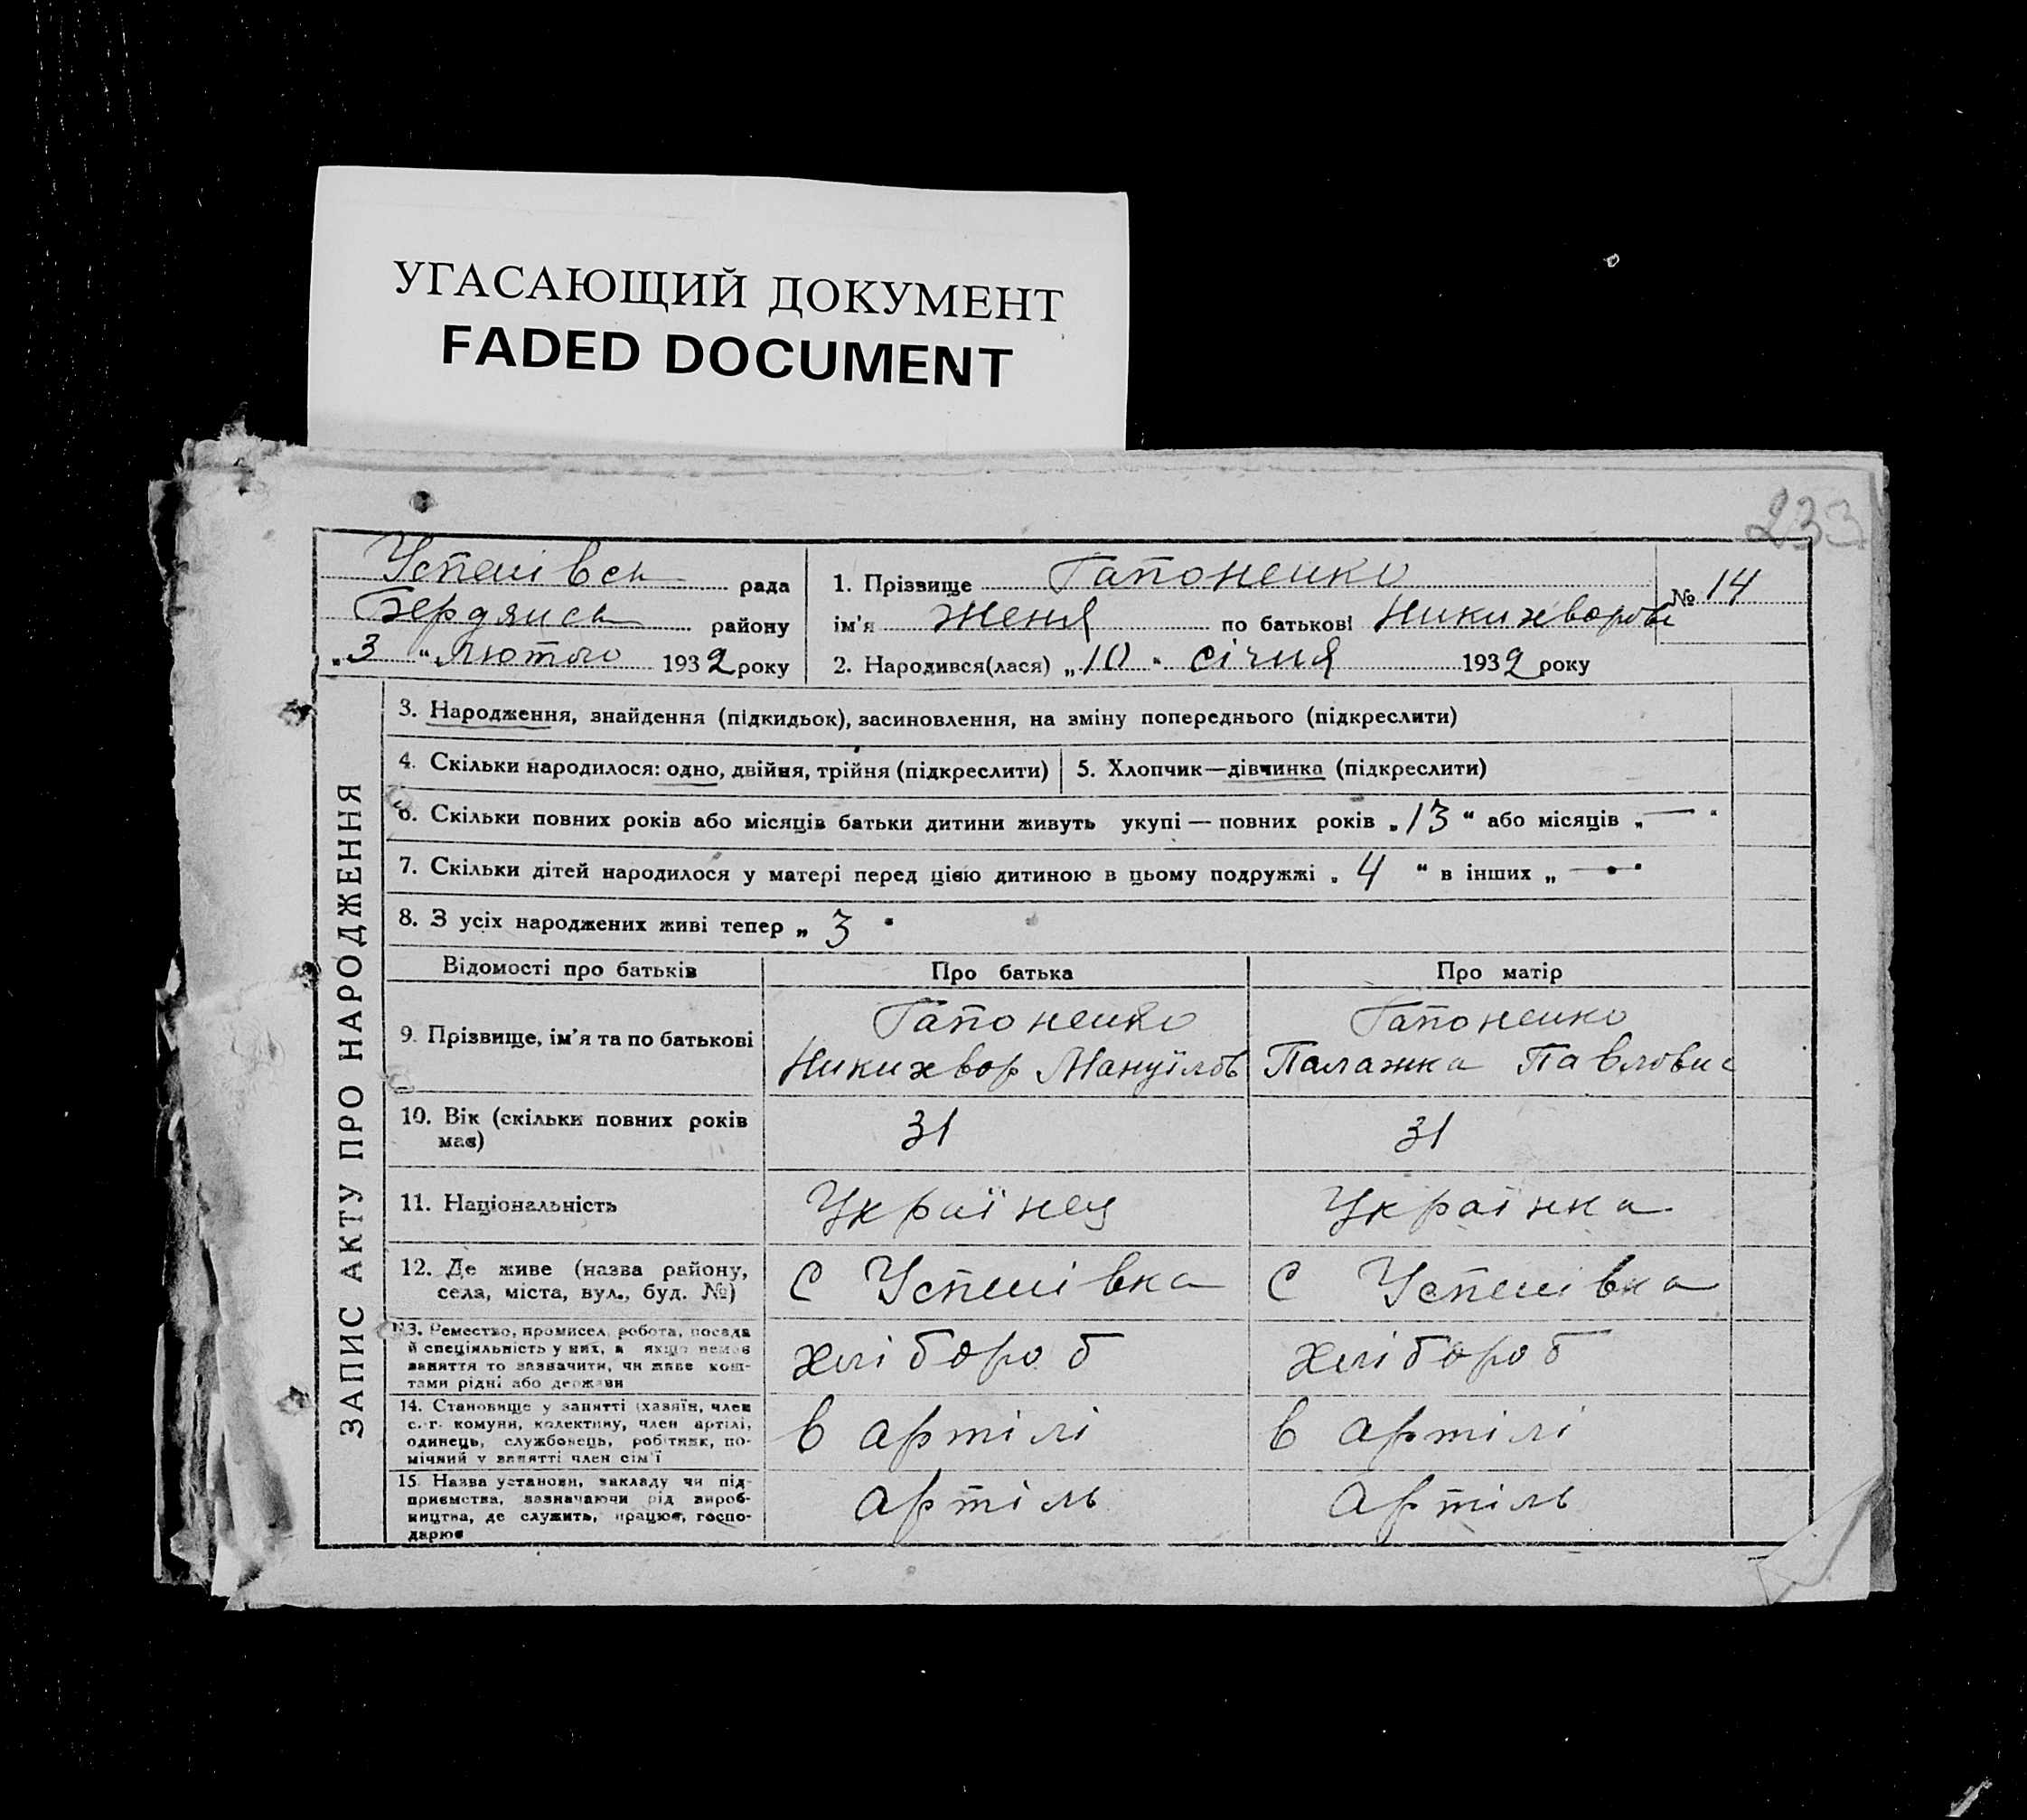 УГАСАЮЩИЙ ДОКУМЕНТ
FADED DOCUMENT
233
Успенівськ рада
Бердянськ району
„3“ Лютого 1932 року
1. Прізвище Гапоненко
№ 14
ім'я Женя по батькові Никихворовн
2. Народився(лася) „10“ січня 1932 року
ЗАПИС АКТУ ПРО НАРОДЖЕННЯ
3. Народження, знайдення (підкидьок), засиновлення, на зміну попереднього (підкреслити)
4. Скільки народилося: одно, двійня, трійня (підкреслити)
5. Хлопчик—дівчинка (підкреслити)
6. Скільки повних років або місяців батьки дитини живуть укупі — повних років „13“ або місяців „—“
7. Скільки дітей народилося у матері перед цією дитиною в цьому подружжі „4“ в інших „—“
8. З усіх народжених живі тепер „3“
Відомості про батьків Про батька Про матір
9. Прізвище, ім'я та по батькові
Гапоненко
Никихвор Мануїлов
Гапоненко
Палажка Павловис
10. Вік (скільки повних років
має)
31
31
11. Національність
Українец
Українка
12. Де живе (назва району,
села, міста, вул., буд. №)
С Успенівка
С Успенівка
13. Ремество, промисел, робота, посада
й спеціяльність у них, а якщо немає
заняття то зазначити, чи живе кош-
тами рідні або держави
хлібороб
хлібороб
14. Становище у занятті (хазяїн, член
с.-г. комуни, колективу, член артілі,
одинець, службовець, робітник, по-
мічний у занятті член сім'ї
в артілі
в артілі
15. Назва установи, закладу чи під-
приємства, зазначаючи рід вироб-
ництва, де служить, працює, госпо-
дарює
артіль
Артіль